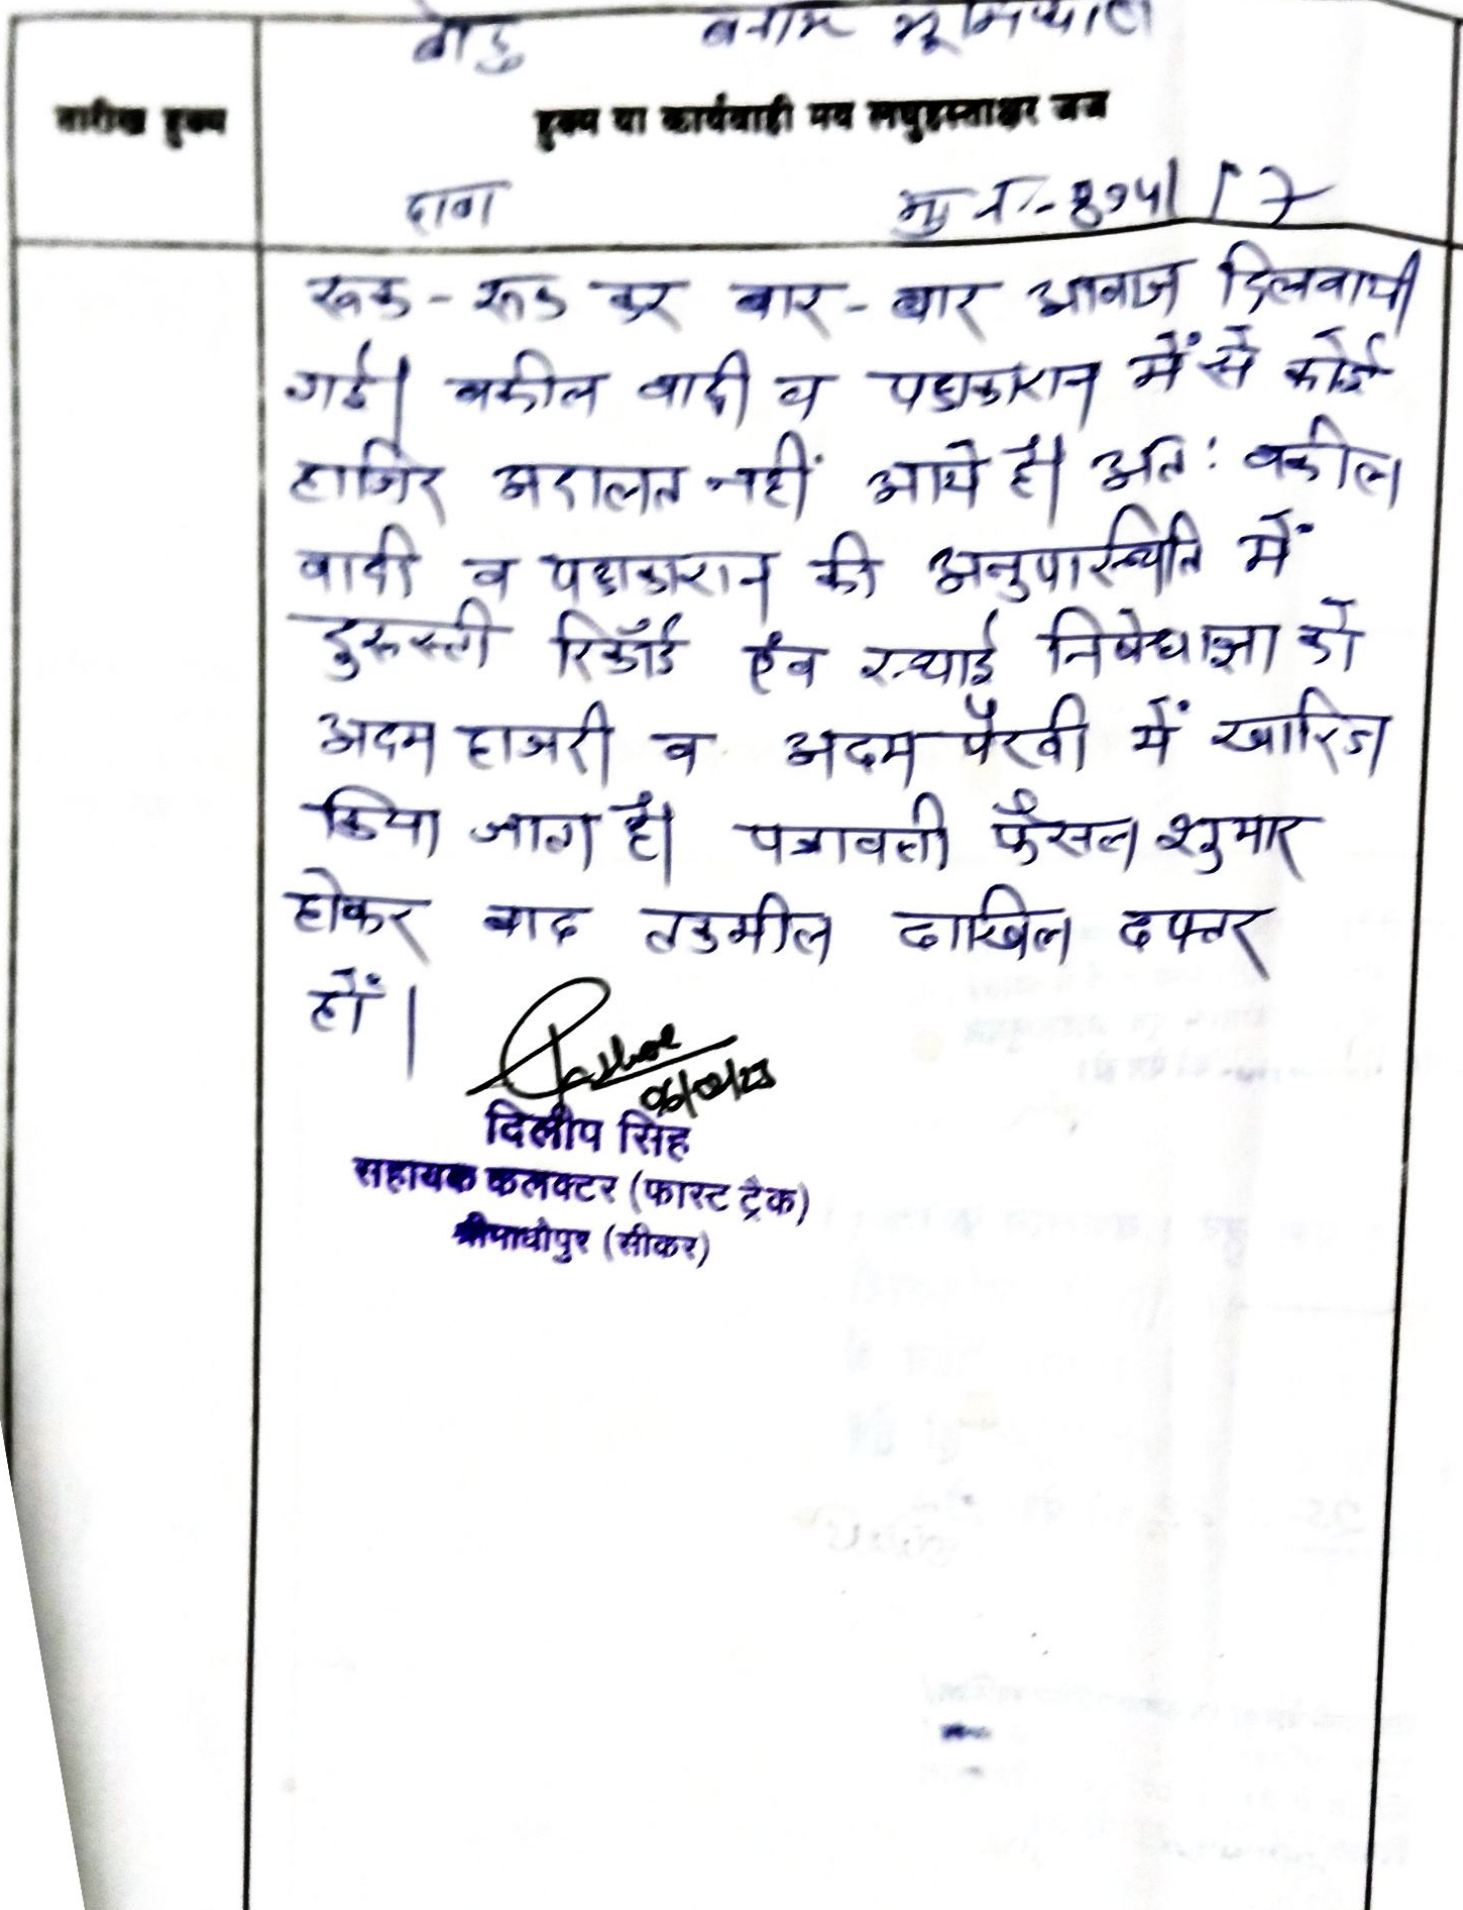 बनाम
तारीख हुक्म
हुक्म या कार्यवाही मय लघुहस्ताक्षर जज
दावा मु नं.-
रूक-रूक कर बार-बार आवाज दिलवायी
गई। वकील वादी व पक्षकारान में से कोई
हाजिर अदालत नहीं आये है। अत: वकील
वादी व पक्षकारान की अनुपस्थिति में
दुरूस्ती रिकॉर्ड एंव स्थाई निषेधाज्ञा को
अदम हाजरी व अदम पैरवी में खारिज
किया जाता है। पत्रावली फैसल शुमार
होकर बाद तकमील दाखिल दफ्तर
हों।
दिलीप सिंह
सहायक कलक्टर (फास्ट ट्रैक)
श्रीमाधोपुर (सीकर)